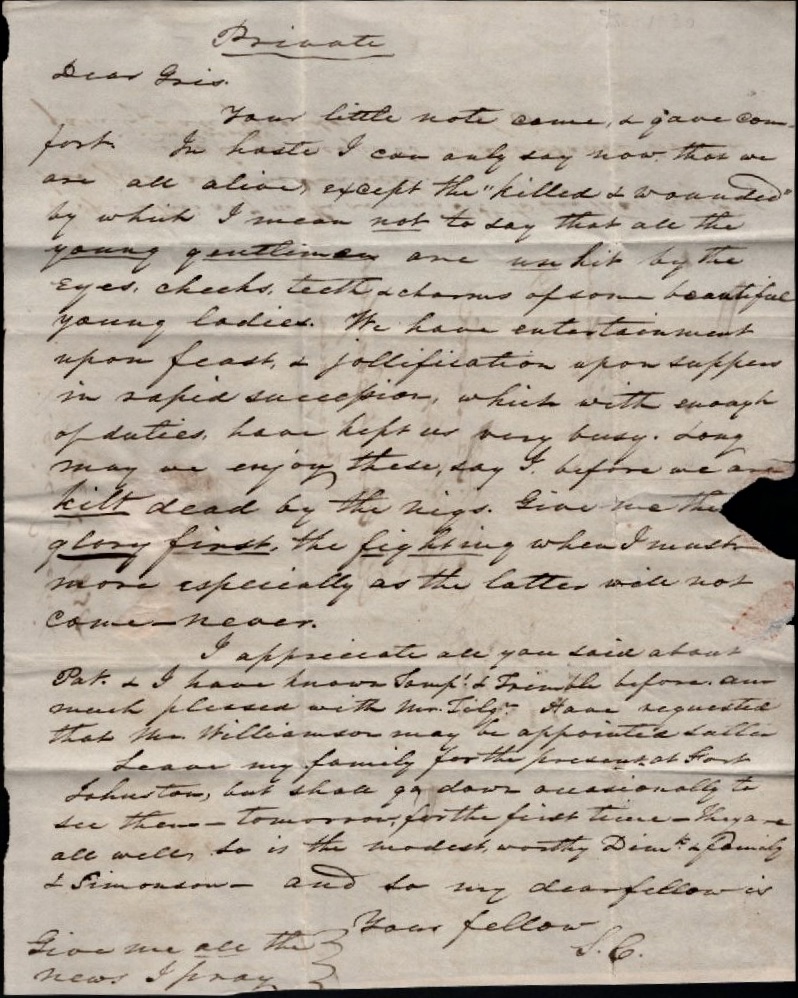 Private
Dear Gris.
Your little note came, & gave com-
fort. In haste I can only say now, that we
are all alive, except the "killed & wounded"
by which I mean not to say that all the
young gentlemen are unhit by the
Eyes, cheeks, teeth & charms of some beautiful
young ladies. We have entertainment
upon feast, & jollification upon suppers
in rapid succession, which with enough
of duties, have kept us very busy. Long
may we enjoy these, say I, before we are
kilt dead by the nigs. Give me the
glory first, the fighting when I must
more especially as the latter will not
come—never.
I appreciate all you said about
Pat. & I have known & Trimble before. am
much pleased with Mr. Have requested
that Mr. Williamson may be appointed sutler
Leave my family for the present at Fort
Johnston, but shall go down occasionally to
see them—tomorrow, for the first time—They are
all well, so is the modest, worthy Dimk. & family
& Simonson— and so my dear fellow is
Your fellow
S. C.
Give me all the
news I pray